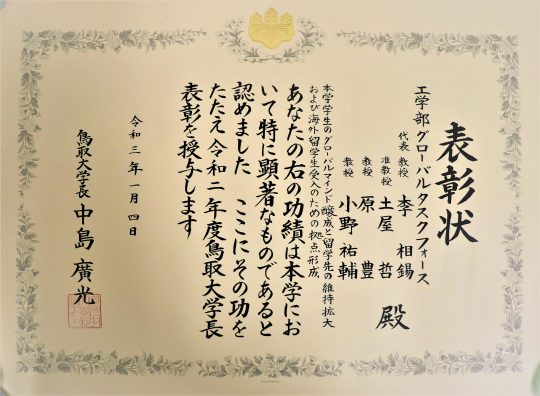 表彰状
工学部グローバルタスクフォース
代表 教授 李 相錫
准教授 土屋 哲
教授 原 豊
教授 小野 祐輔
殿
本学学生のグローバルマインド醸成と留学先の維持拡大
および海外留学生受入のための拠点形成
あなたの右の功績は本学にお
いて特に顕著なものであると
認めました ここにその功を
たたえ令和二年度鳥取大学長
表彰を授与します
令和三年一月四日
鳥取大学長 中島 廣光